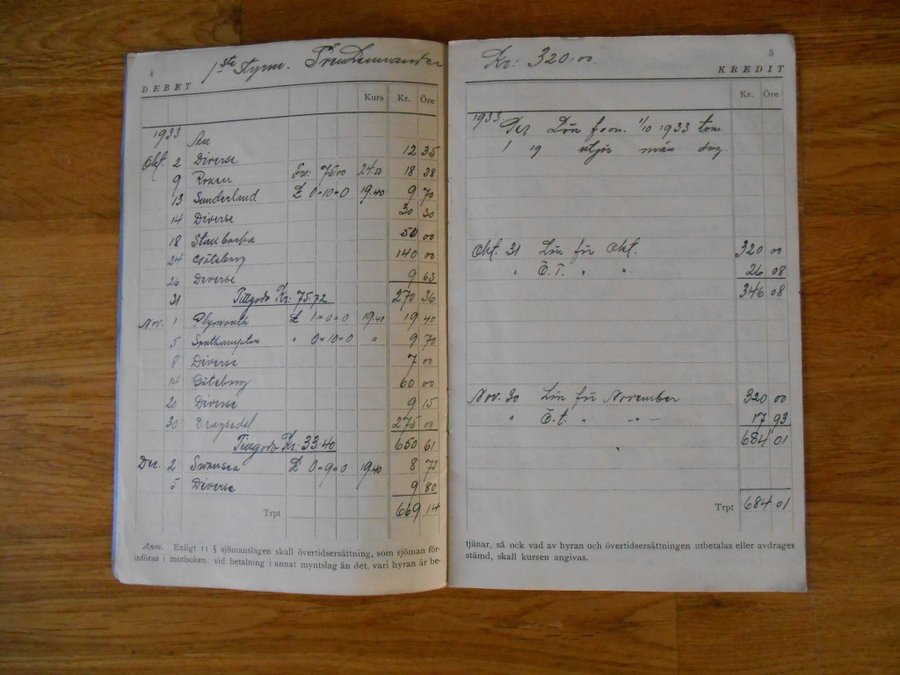 4
1ste Styrm.
DEBET
Kurs Kr. Öre
1933
Okt. 2 Diverse 12 35
9 Rouen Frs: 75.00 24.50 18 38
13 Sunderland £ 0-10-0 19.40 9 70
14 Diverse 30 30
18 50 00
24 Göteborg 140 00
26 Diverse 9 63
31 Tillgodo Kr: 75.72 270 36
Nov. 1 Plymouth £ 1-0-0 19.40 19 40
5 Southampton " 0-10-0 " 9 70
8 Diverse 7 00
14 Göteborg 60 00
20 Diverse 9 15
30 Dragsedel 275 00
Tillgodo Kr: 33.40 650 61
Dec. 2 Swansea £ 0-9-0 19.40 8 73
5 Diverse 9 80
Trpt 669 14
Anm. Enligt 11 § sjömanslagen skall övertidsersättning, som sjöman för-
införas i motboken; vid betalning i annat myntslag än det, vari hyran är be-
5
Kr: 320.00
KREDIT
Kr. Öre
1933 Lön from. 1/10 1933 tom.
1 19 utgör mån dag.
Okt. 31 Lön för Okt. 320 00
" Ö.T. " " 26 08
346 08
Nov. 30 Lön för November 320 00
" Ö.t. " " 17 93
684 01
Trpt 684 01
tjänar, så ock vad av hyran och övertidsersättningen utbetalas eller avdrages
stämd, skall kursen angivas.